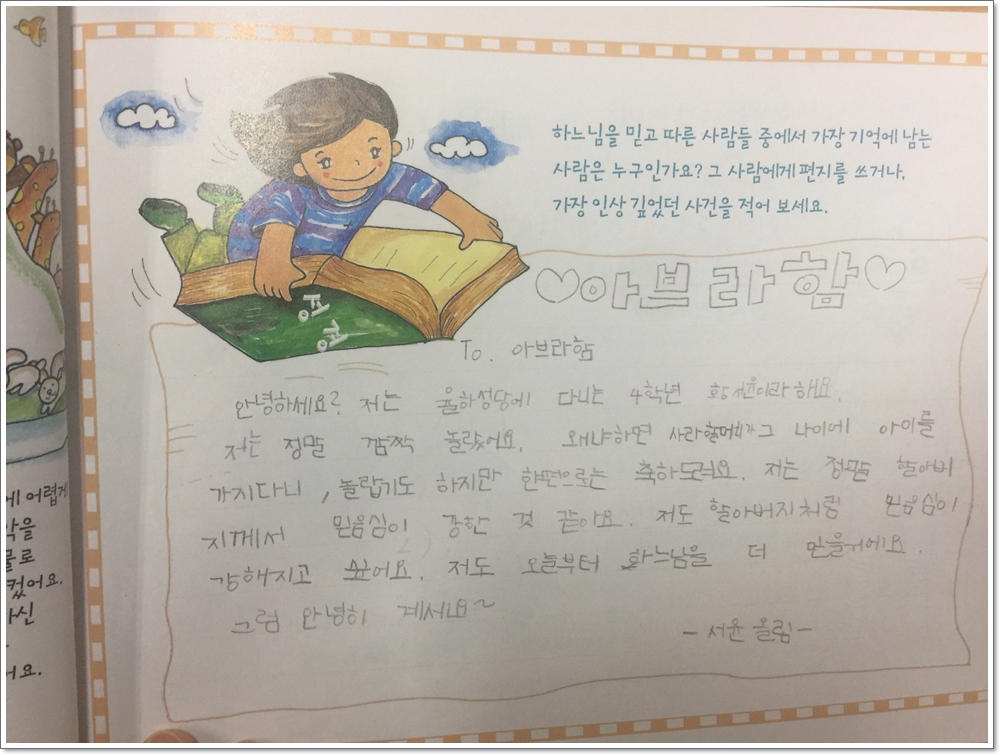 하느님을 믿고 따른 사람들 중에서 가장 기억에 남는
사람은 누구인가요? 그 사람에게 편지를 쓰거나,
가장 인상 깊었던 사건을 적어 보세요.
♡아브라함♡
성경
To. 아브라함
안녕하세요? 저는 율하성당에 다니는 4학년 황서윤이라 해요.
저는 정말 깜짝 놀랐어요. 왜냐하면 사라할머니가 그 나이에 아이를
가지다니, 놀랍기도 하지만 한편으로는 축하드려요. 저는 정말 할아버
지께서 믿음심이 강한 것 같아요. 저도 할아버지처럼 믿음심이
강해지고 싶어요. 저도 오늘부터 하느님을 더 믿을거에요.
그럼 안녕히 계세요~
-서윤 올림-
에 어렵게
을
물로
컸어요.
하신
어요.